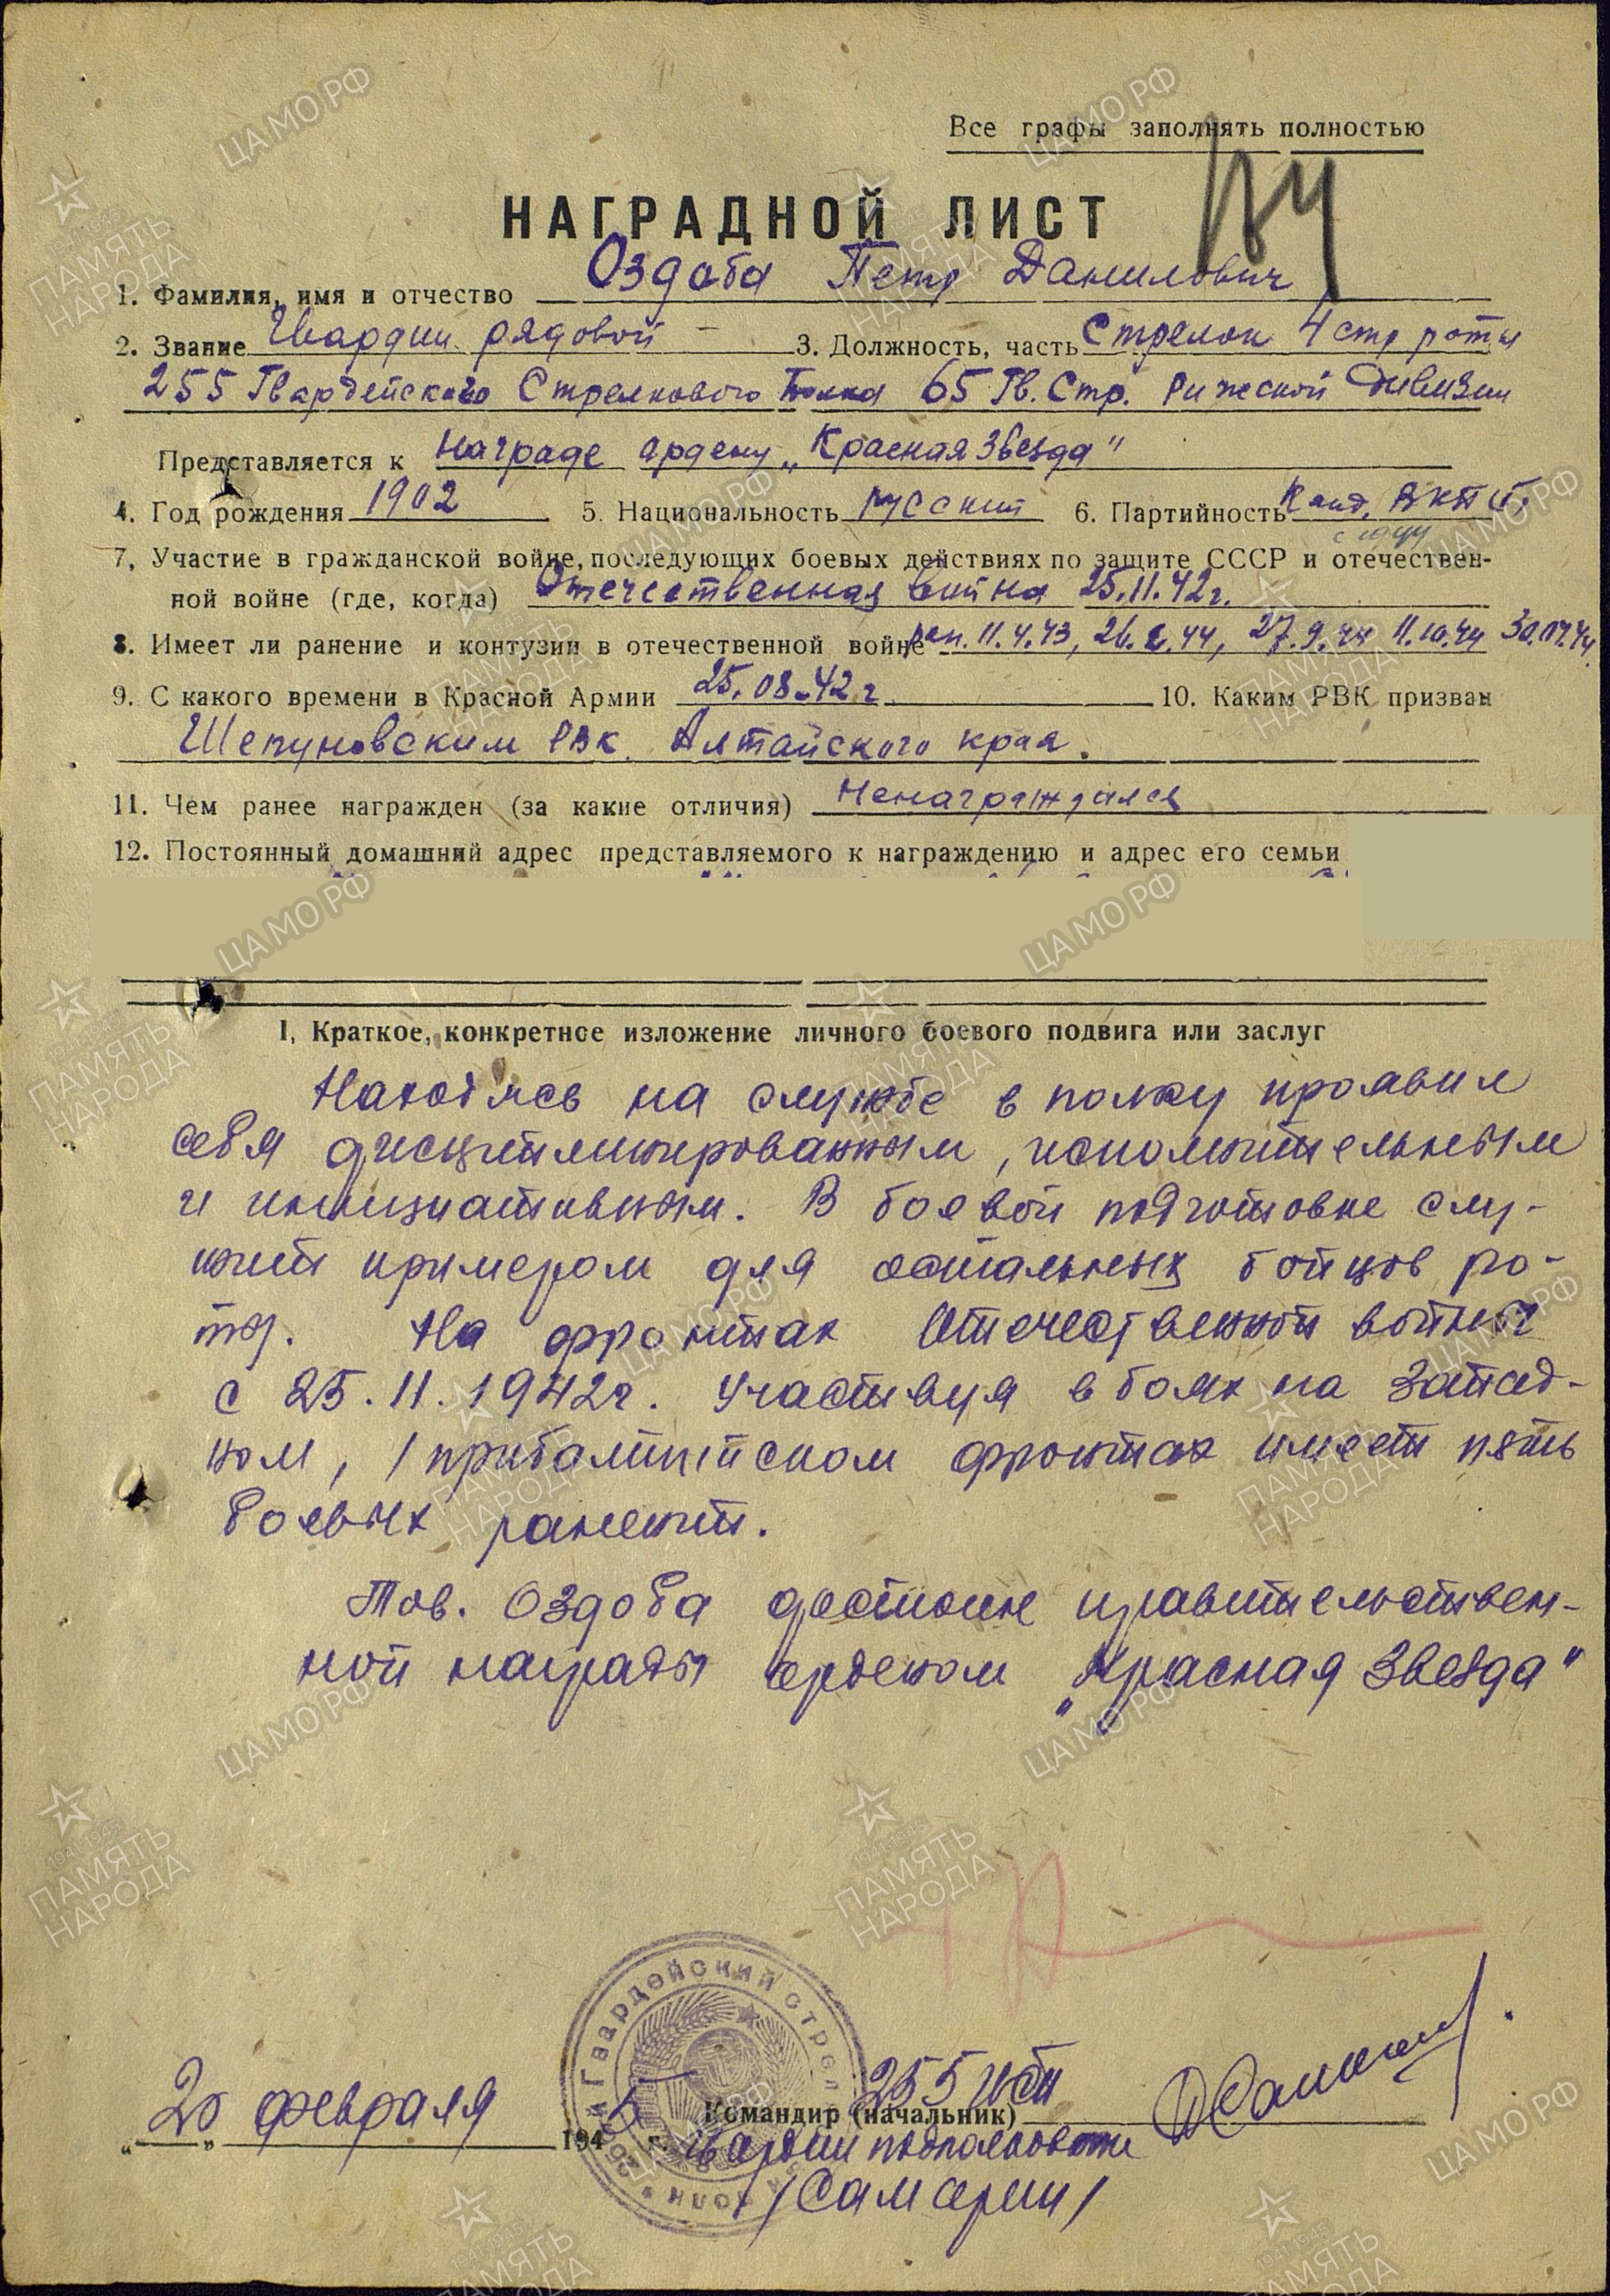 Все графы заполнять полностью
НАГРАДНОЙ ЛИСТ
1. Фамилия, имя и отчество Оздоба Петр Данилович
2. Звание Гвардии рядовой 3. Должность, часть Стрелок 4 стр роты
255 Гвардейского Стрелкового Полка 65 Гв. Стр. Рижской Дивизии
Представляется к награде ордену „Красная Звезда"
4. Год рождения 1902 5. Национальность русский 6. Партийность Канд. ВКПб.
7, Участие в гражданской войне, последующих боевых действиях по защите СССР и отечествен-
ной войне (где, когда) Отечественная война 25.11.42г.
8. Имеет ли ранение и контузии в отечественной войне ран. 11.4.43, 44, 27.9.44 11.10.44
9. С какого времени в Красной Армии 25.08.42г 10. Каким РВК призван
Шепуновским РВК. Алтайского края.
11. Чем ранее награжден (за какие отличия) Ненаграждался
12. Постоянный домашний адрес представляемого к награждению и адрес его семьи
I, Краткое, конкретное изложение личного боевого подвига или заслуг
Находясь на службе в полку проявил
себя дисциплинированным, исполнительным
и инициативным. В боевой подготовке слу-
жит примером для остальных бойцов ро-
ты. На фронтах Отечественной войны
с 25.11.1942г. Участвуя в боях на Запад-
ном, 1 прибалтийском фронтах имеет пять
боевых ранений.
Тов. Оздоба достоин правительствен-
ной награды орденом „Красная Звезда"
255 гсп
„20" февраля 1945 г. Командир (начальник)
Гвардии подполковник
/Самарин/
Гвардейский стрел
полк
ЦАМО РФ
1941-1945
ПАМЯТЬ
НАРОДА